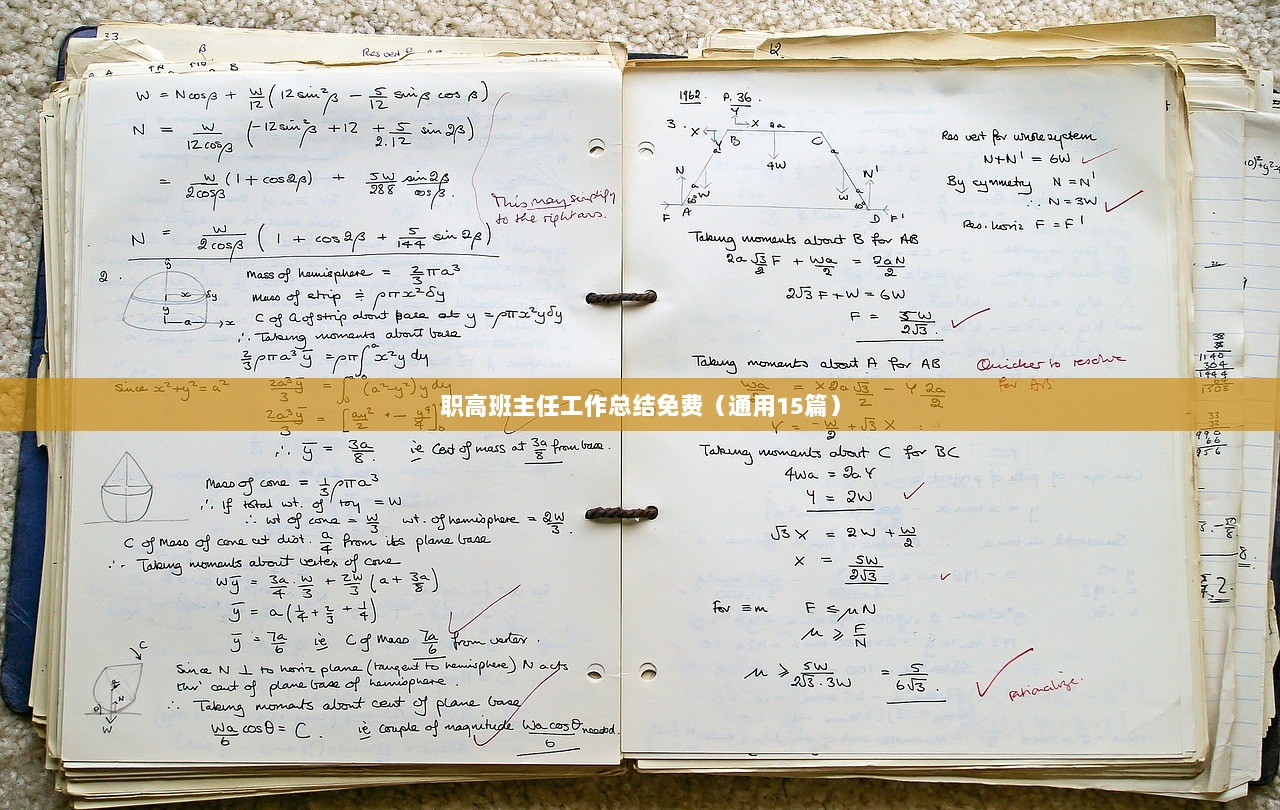 33.
Res vert
β
A B
W = N cosβ + W/12 (12 sin²β − 5/12 sinβ cosβ)
N = W/12cosβ (−12 sin²β + 12 + 5/2.12 sin 2β)
= W/2cosβ (1 + cos2β) + 5W/288 sin2β/cosβ.
This may simplify
to the right ans.
N = W/2cosβ (1 + cos 2β + 5/144 sin 2β)
2.
y
x δy
y
a x
Mass of hemisphere = 2/3 πa³
mass of strip ≑ ρπx²δy
C of G of strip about base at y = ρπx²yδy
∴ Taking moments about base
2/3 ρπa³ȳ = ρπ∫₀ᵃ x²y dy
since x²+y²=a² 2a³ȳ/3 = ∫₀ (a²−y²) y dy
职高班主任工作总结免费（通用15篇）
2a³ȳ/3
∴ ȳ = 3a/8 ie Cent of mass at 3a/8 from base.
Mass of cone = 1/3 ρπa³
∴ If total wt. of toy = W
∴ wt of cone = W/3 wt. of hemisphere = 2W/3.
C of mass of cone at dist. a/4 from its plane base
∴ Taking moments about vertex of cone
Wȳ = 3a/4 · W/3 + 2W/3 (a + 3a/8)
ȳ = a(1/4 + 2/3 + 1/4)
ȳ = 7a/6 ie C of mass 7a/6 from vertex.
C
N
θ
W
Since N ⊥ to horiz plane (tangent to hemisphere) N acts
thro' cent of plane base of hemisphere.
∴ Taking moments about cent of plane base
Wa/6 cosθ = C. ie couple of magnitude Wa cosθ/6 needed.
1962. P. 36.
3.
X Y X 2a
B C
4W
N N'
W W
60° 60°
F A D F'
Res vert for whole system
N+N' = 6W
By symmetry N = N'
∴ N = 3W
Res. horiz F = F'
Taking moments about B for AB
2a √3/2 F + Wa/2 = 2aN/2
2√3 F + W = 6W
F = 5W/2√3.
Taking moments about A for AB
Quicker to resolve
for AB
Wa/2 = X2a√3/2 − Y 2a/2
Y = −W/2 + √3 X
Taking moments about C for BC
4Wa = 2aY
Y = 2W
√3 X = 2W + W/2
X = 5W/2√3
For ≡m F ≤ μN
μ ≥ F/N
μ ≥ 5W/2√3.3W = 5/6√3.
rationalize.
38
38
1140
304
1444
64
1508
33